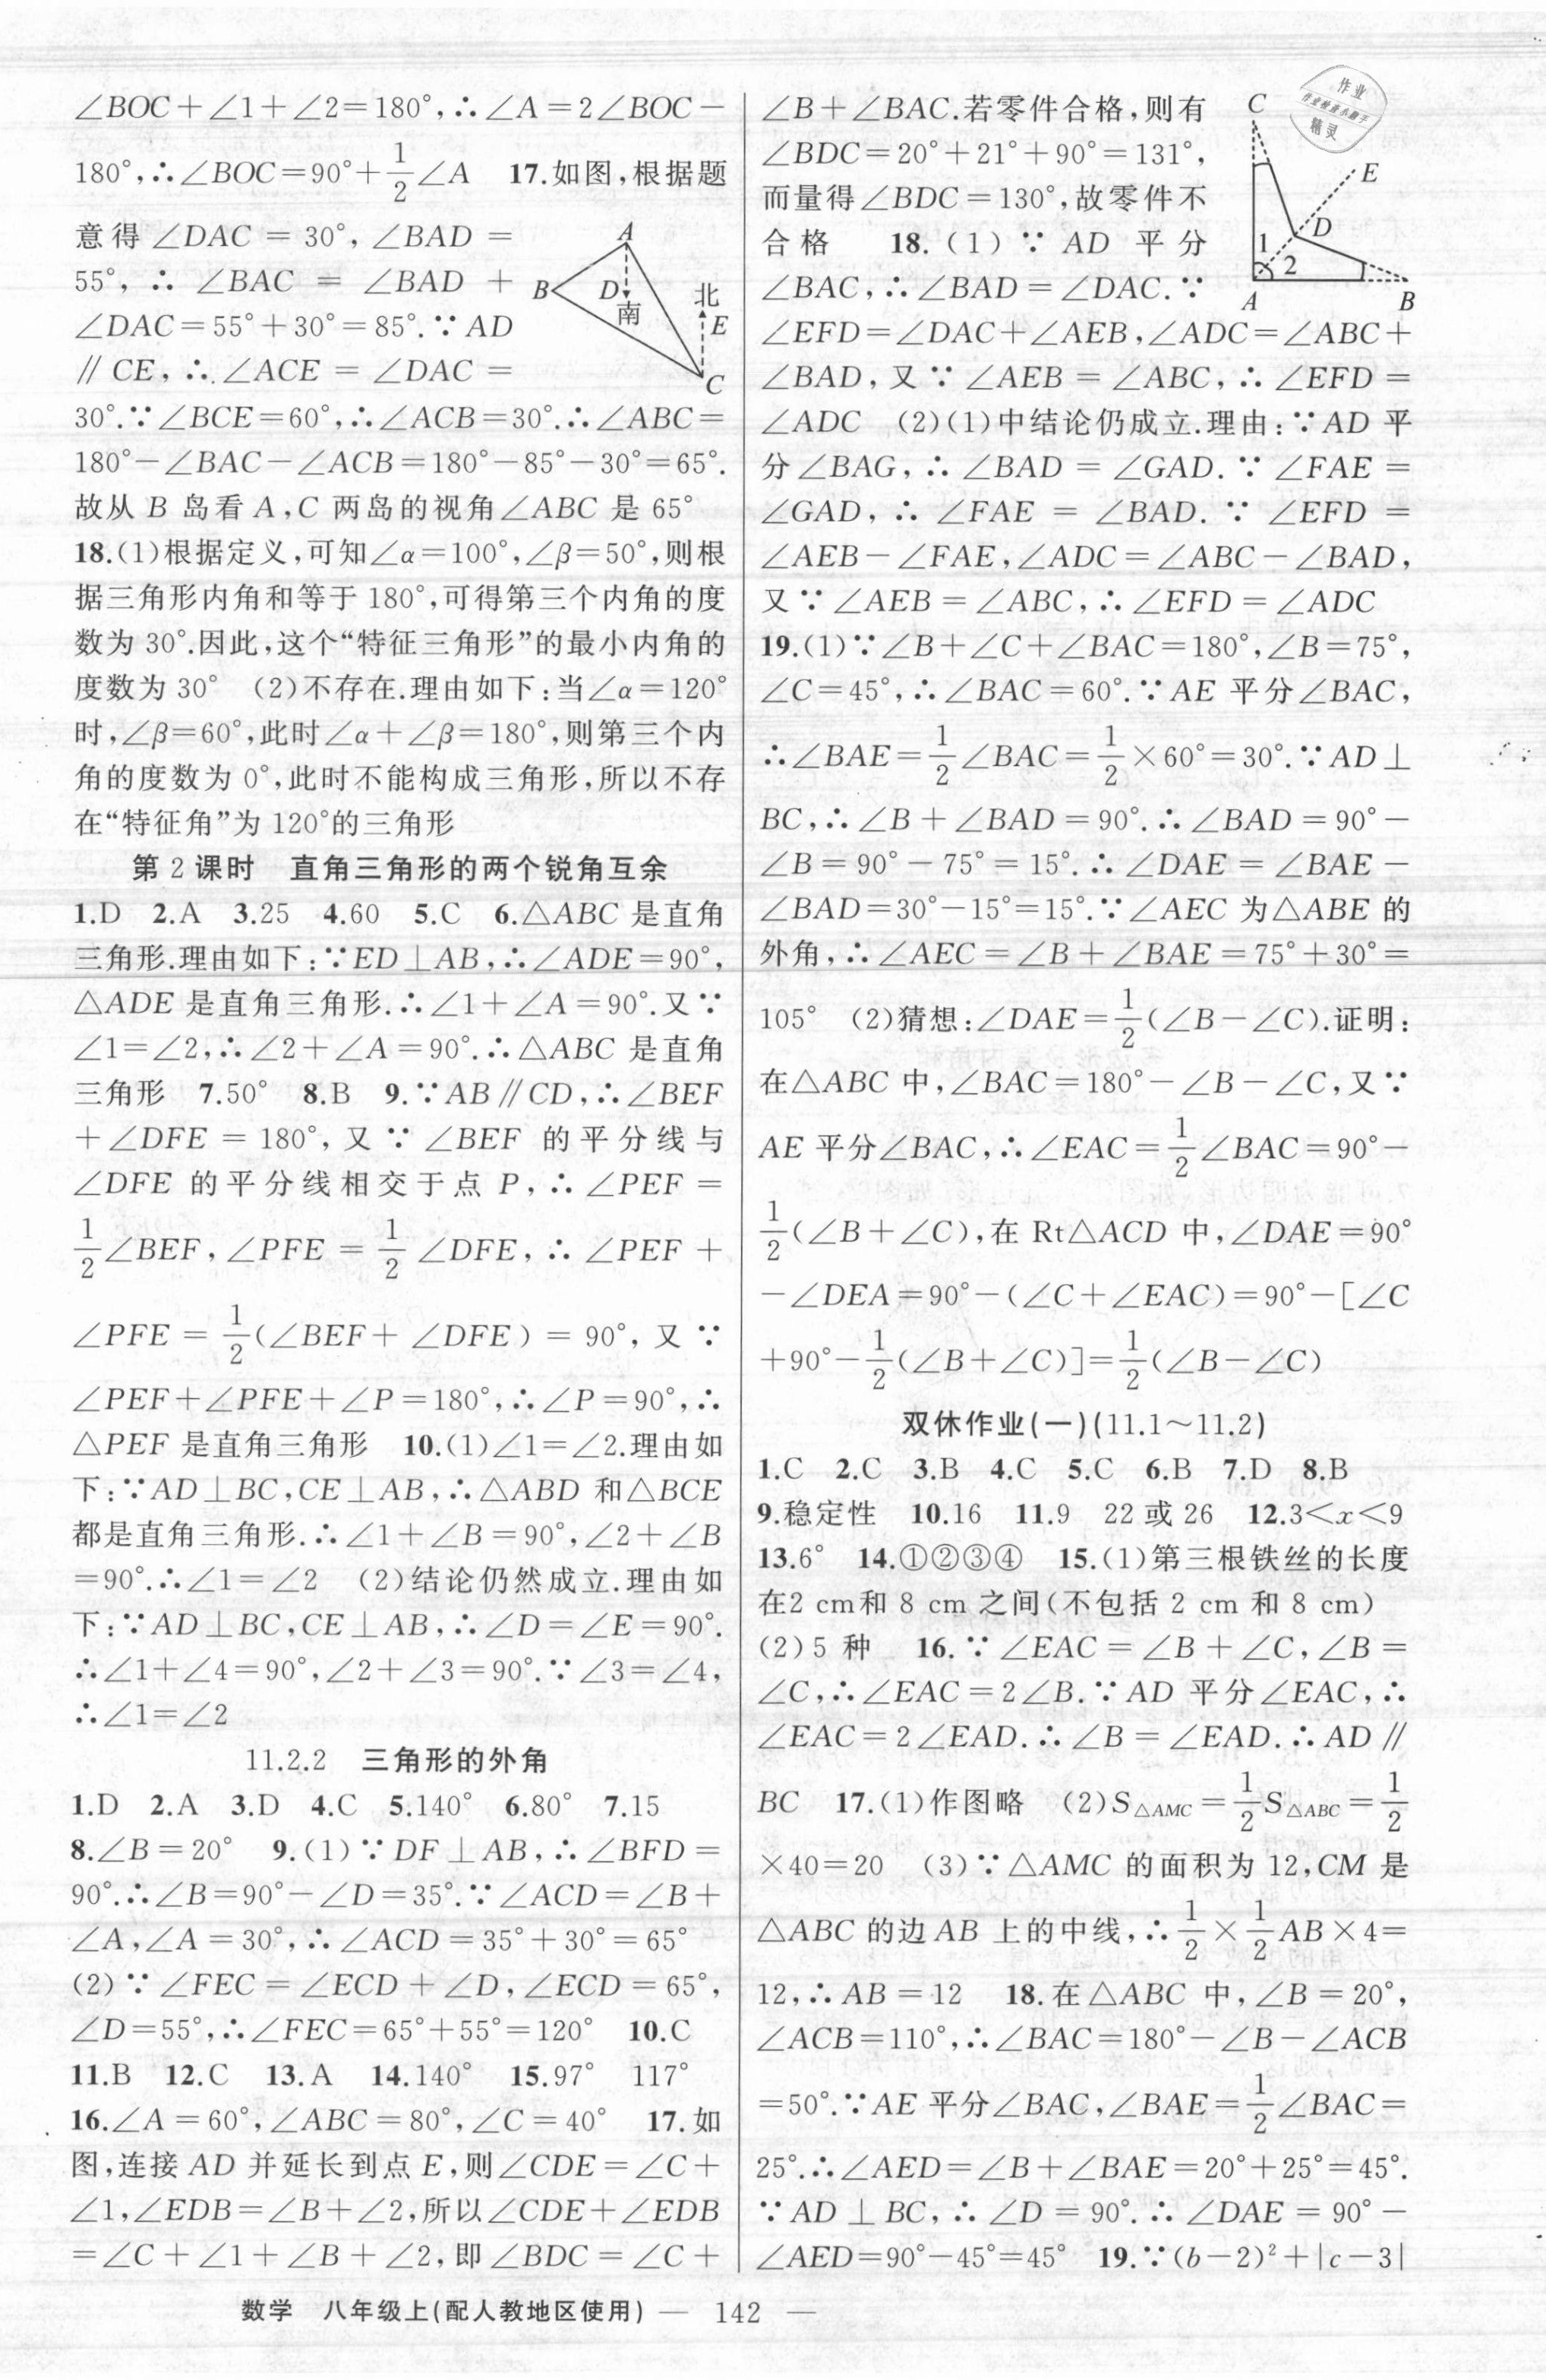 ∠BOC+∠1+∠2=180°,∴∠A=2∠BOC-
180°,∴∠BOC=90°+1/2∠A 17.如图,根据题
意得∠DAC=30°,∠BAD=
55°,∴∠BAC=∠BAD+
∠DAC=55°+30°=85°.∵AD
∥CE,∴∠ACE=∠DAC=
A
B
D
南
北
E
C
30°.∵∠BCE=60°,∴∠ACB=30°.∴∠ABC=
180°-∠BAC-∠ACB=180°-85°-30°=65°.
故从 B 岛看 A,C 两岛的视角∠ABC 是 65°
18.(1)根据定义,可知∠α=100°,∠β=50°,则根
据三角形内角和等于 180°,可得第三个内角的度
数为 30°.因此,这个“特征三角形”的最小内角的
度数为 30° (2)不存在.理由如下:当∠α=120°
时,∠β=60°,此时∠α+∠β=180°,则第三个内
角的度数为 0°,此时不能构成三角形,所以不存
在“特征角”为 120°的三角形
第 2 课时 直角三角形的两个锐角互余
1.D 2.A 3.25 4.60 5.C 6.△ABC 是直角
三角形.理由如下:∵ED⊥AB,∴∠ADE=90°,
△ADE 是直角三角形.∴∠1+∠A=90°.又∵
∠1=∠2,∴∠2+∠A=90°.∴△ABC 是直角
三角形 7.50° 8.B 9.∵AB∥CD,∴∠BEF
+∠DFE=180°,又∵∠BEF 的平分线与
∠DFE 的平分线相交于点 P,∴∠PEF=
1/2∠BEF,∠PFE=1/2∠DFE,∴∠PEF+
∠PFE=1/2(∠BEF+∠DFE)=90°,又∵
∠PEF+∠PFE+∠P=180°,∴∠P=90°,∴
△PEF 是直角三角形 10.(1)∠1=∠2.理由如
下:∵AD⊥BC,CE⊥AB,∴△ABD 和△BCE
都是直角三角形.∴∠1+∠B=90°,∠2+∠B
=90°.∴∠1=∠2 (2)结论仍然成立.理由如
下:∵AD⊥BC,CE⊥AB,∴∠D=∠E=90°.
∴∠1+∠4=90°,∠2+∠3=90°.∵∠3=∠4,
∴∠1=∠2
11.2.2 三角形的外角
1.D 2.A 3.D 4.C 5.140° 6.80° 7.15
8.∠B=20° 9.(1)∵DF⊥AB,∴∠BFD=
90°.∴∠B=90°-∠D=35°.∵∠ACD=∠B+
∠A,∠A=30°,∴∠ACD=35°+30°=65°
(2)∵∠FEC=∠ECD+∠D,∠ECD=65°,
∠D=55°,∴∠FEC=65°+55°=120° 10.C
11.B 12.C 13.A 14.140° 15.97° 117°
16.∠A=60°,∠ABC=80°,∠C=40° 17.如
图,连接 AD 并延长到点 E,则∠CDE=∠C+
∠1,∠EDB=∠B+∠2,所以∠CDE+∠EDB
=∠C+∠1+∠B+∠2,即∠BDC=∠C+
∠B+∠BAC.若零件合格,则有
∠BDC=20°+21°+90°=131°,
而量得∠BDC=130°,故零件不
合格 18.(1)∵AD 平分
∠BAC,∴∠BAD=∠DAC.∵
作业
精灵
C
E
D
1
2
A
B
∠EFD=∠DAC+∠AEB,∠ADC=∠ABC+
∠BAD,又∵∠AEB=∠ABC,∴∠EFD=
∠ADC (2)(1)中结论仍成立.理由:∵AD 平
分∠BAG,∴∠BAD=∠GAD.∵∠FAE=
∠GAD,∴∠FAE=∠BAD.∵∠EFD=
∠AEB-∠FAE,∠ADC=∠ABC-∠BAD,
又∵∠AEB=∠ABC,∴∠EFD=∠ADC
19.(1)∵∠B+∠C+∠BAC=180°,∠B=75°,
∠C=45°,∴∠BAC=60°.∵AE 平分∠BAC,
∴∠BAE=1/2∠BAC=1/2×60°=30°.∵AD⊥
BC,∴∠B+∠BAD=90°.∴∠BAD=90°-
∠B=90°-75°=15°.∴∠DAE=∠BAE-
∠BAD=30°-15°=15°.∵∠AEC 为△ABE 的
外角,∴∠AEC=∠B+∠BAE=75°+30°=
105° (2)猜想:∠DAE=1/2(∠B-∠C).证明:
在△ABC 中,∠BAC=180°-∠B-∠C,又∵
AE 平分∠BAC,∴∠EAC=1/2∠BAC=90°-
1/2(∠B+∠C),在 Rt△ACD 中,∠DAE=90°
-∠DEA=90°-(∠C+∠EAC)=90°-[∠C
+90°-1/2(∠B+∠C)]=1/2(∠B-∠C)
双休作业(一)(11.1～11.2)
1.C 2.C 3.B 4.C 5.C 6.B 7.D 8.B
9.稳定性 10.16 11.9 22 或 26 12.3<x<9
13.6° 14.①②③④ 15.(1)第三根铁丝的长度
在2 cm和 8 cm 之间(不包括 2 cm 和 8 cm)
(2)5 种 16.∵∠EAC=∠B+∠C,∠B=
∠C,∴∠EAC=2∠B.∵AD 平分∠EAC,∴
∠EAC=2∠EAD.∴∠B=∠EAD.∴AD∥
BC 17.(1)作图略 (2)S△AMC=1/2S△ABC=1/2
×40=20 (3)∵△AMC 的面积为 12,CM 是
△ABC 的边 AB 上的中线,∴1/2×1/2AB×4=
12,∴AB=12 18.在△ABC 中,∠B=20°,
∠ACB=110°,∴∠BAC=180°-∠B-∠ACB
=50°.∵AE 平分∠BAC,∠BAE=1/2∠BAC=
25°.∴∠AED=∠B+∠BAE=20°+25°=45°.
∵AD⊥BC,∴∠D=90°.∴∠DAE=90°-
∠AED=90°-45°=45° 19.∵(b-2)²+|c-3|
数学 八年级上(配人教地区使用) — 142 —